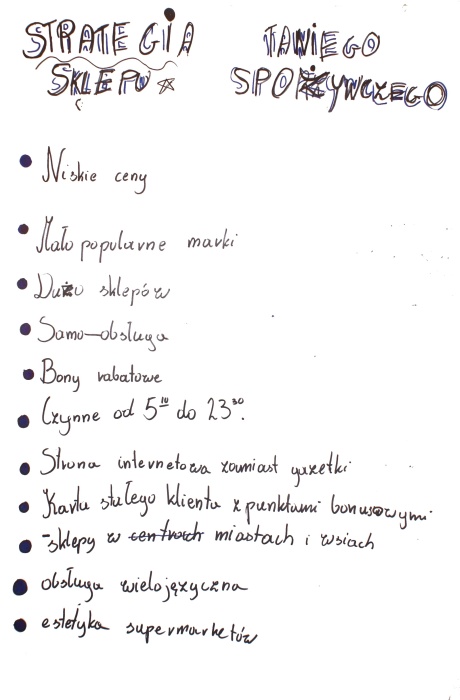 STRATEGIA TANIEGO
SKLEPU SPOŻYWCZEGO
• Niskie ceny
• Mało popularne marki
• Dużo sklepów
• Samo-obsługa
• Bony rabatowe
• Czynne od 5¹⁰ do 23³⁰.
• Strona internetowa zamiast gazetki
• Karta stałego klienta z punktami bonusowymi
• -sklepy w centrach miastach i wsiach
• obsługa wielojęzyczna
• estetyka supermarketów